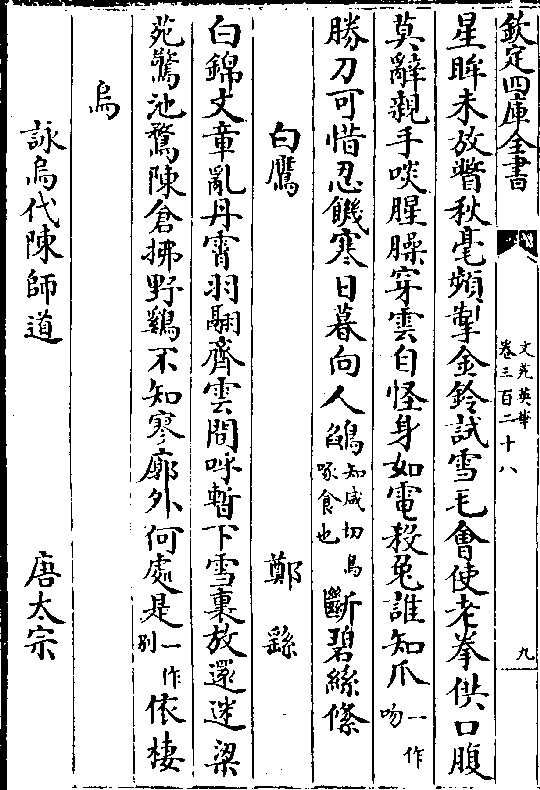 欽定四庫全書
文苑英華
卷三百二十八
九
星眸未放瞥秋毫頻掣金鈴試雪毛會使老拳供口腹
莫辭親手啖腥臊穿雲自怪身如電殺兎誰知爪一作吻
勝刀可惜忍饑寒日暮向人鵮知咸切鳥啄食也斷碧絲絛
白鷹 鄭繇
白錦文章亂丹霄羽翮齊雲間呼暫下雪裏放還迷梁
苑驚池鶩陳倉拂野鷄不知寥廓外何處是一作别依棲
烏
詠烏代陳師道 唐太宗